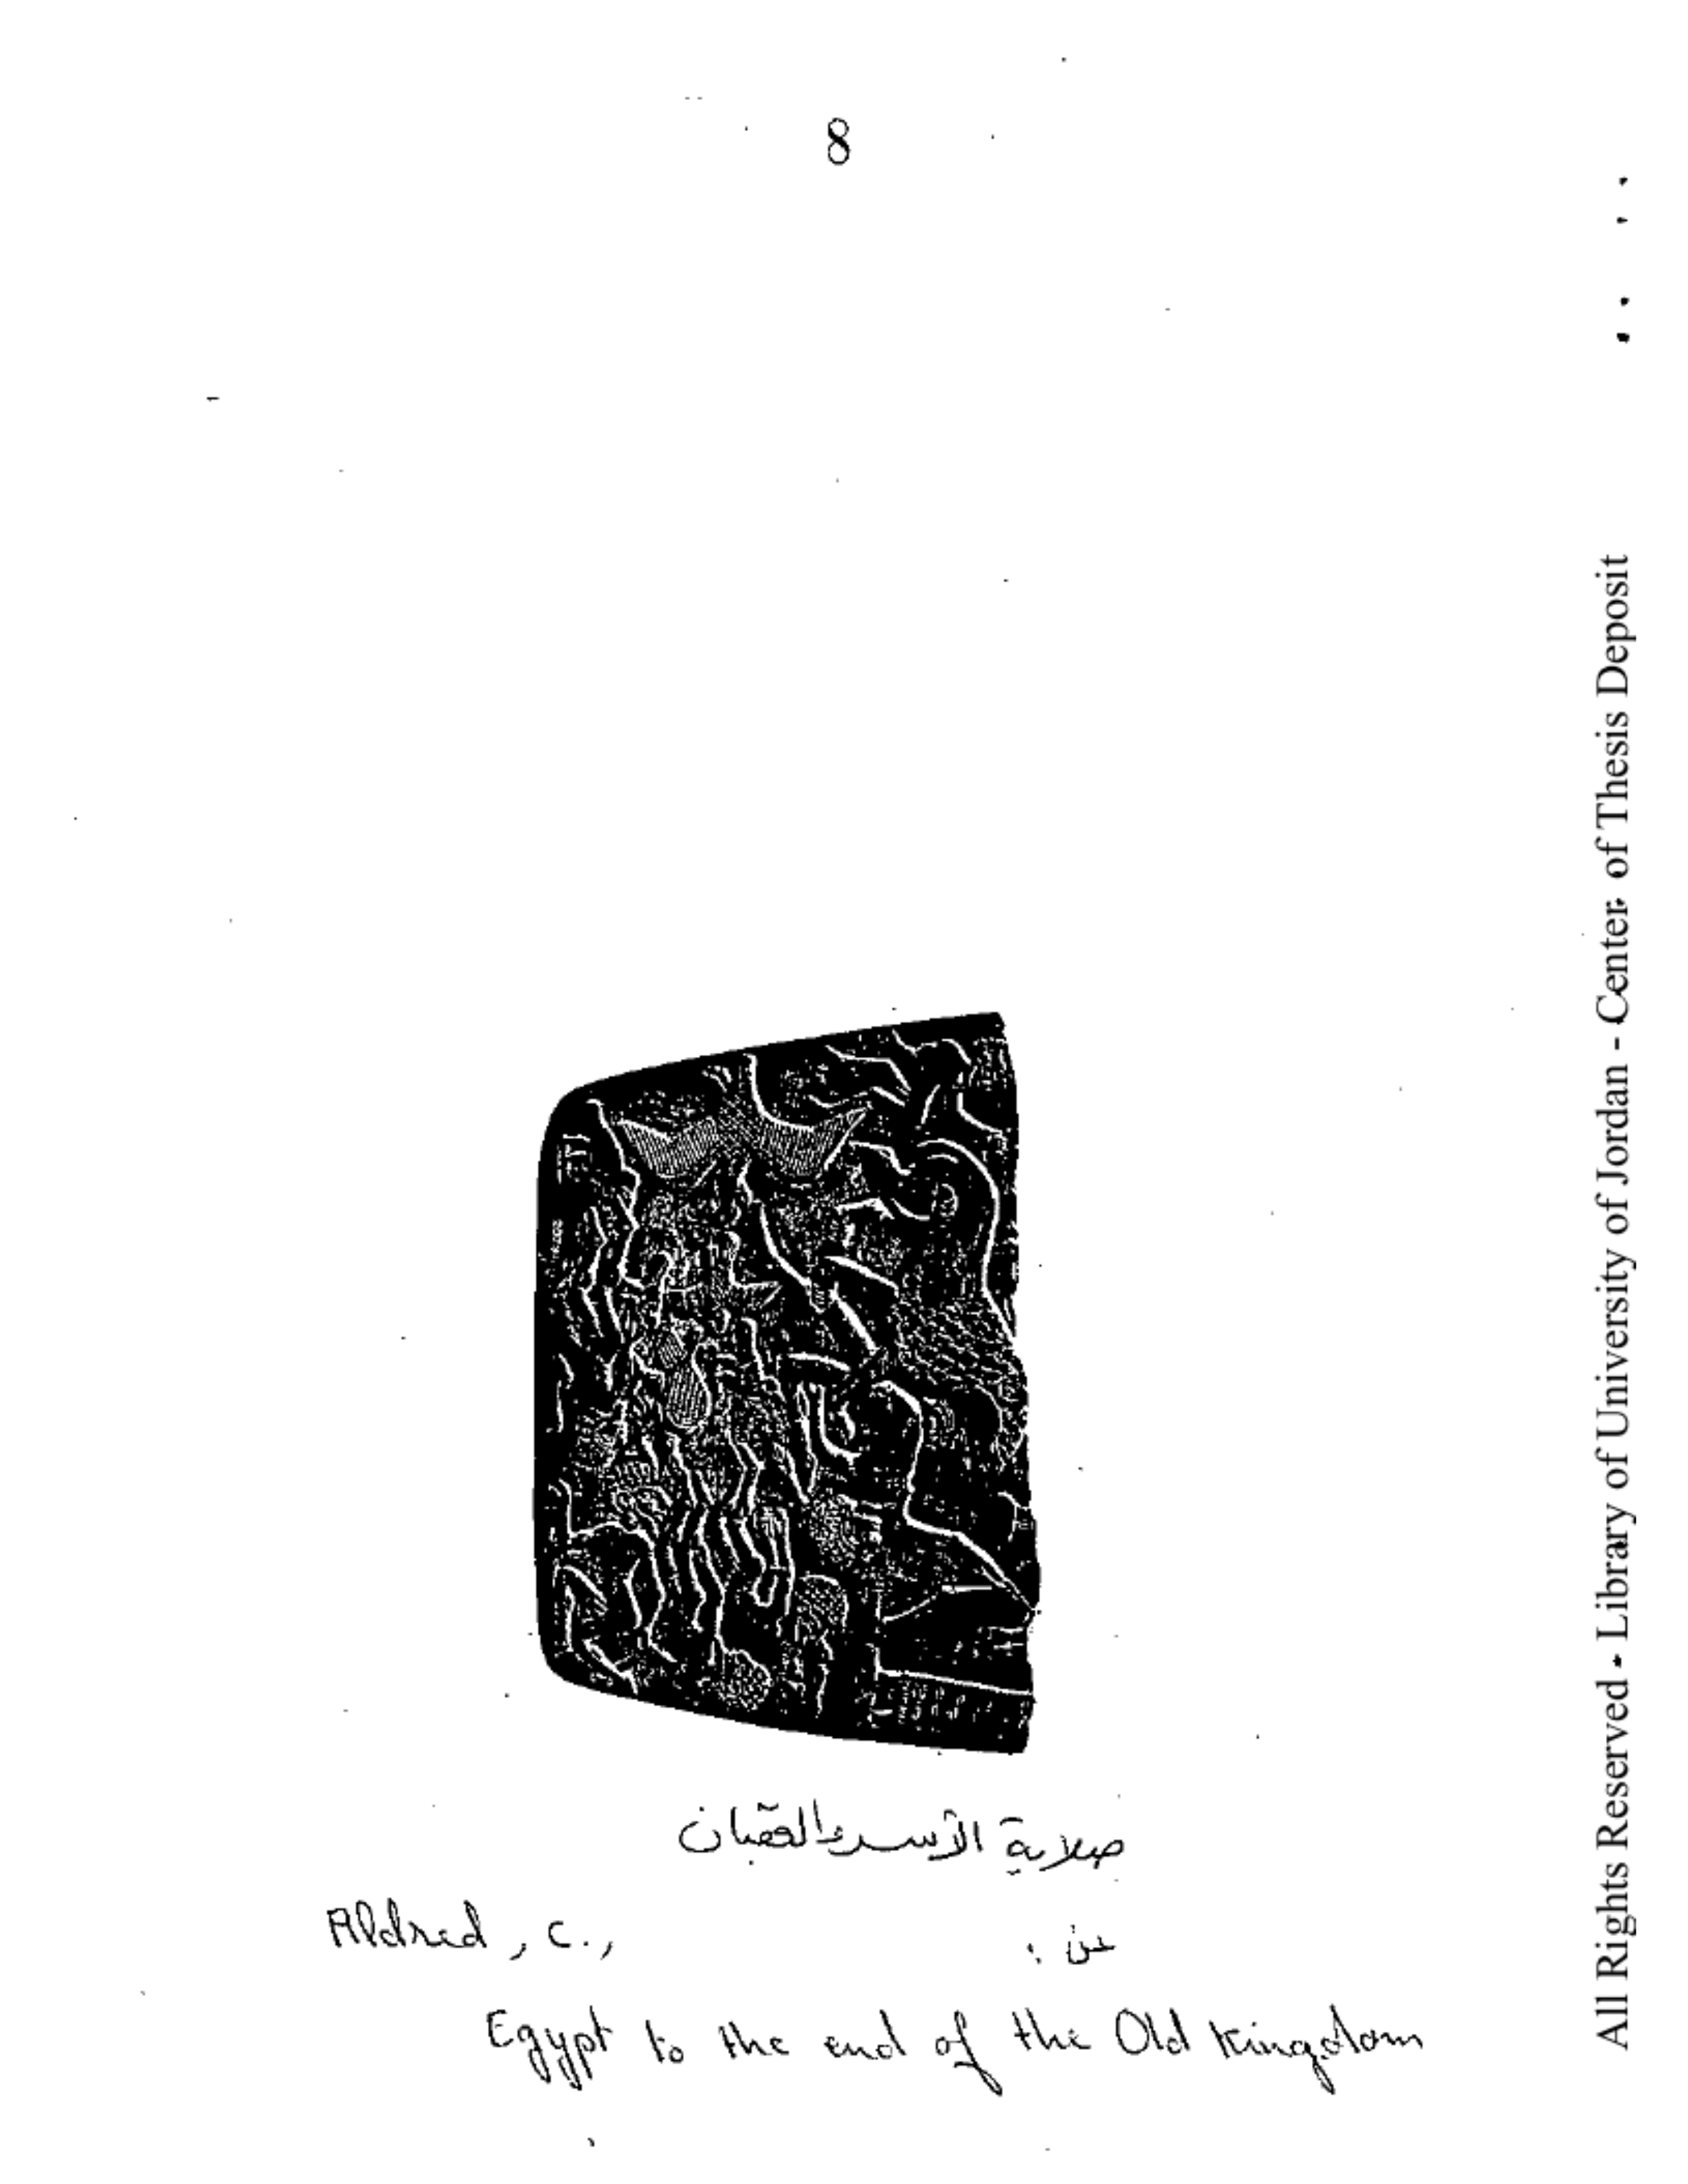 8
صلاية الأسد والعقبان
عن :
Aldred, C.,
Egypt to the end of the Old Kingdom
All Rights Reserved - Library of University of Jordan - Center of Thesis Deposit